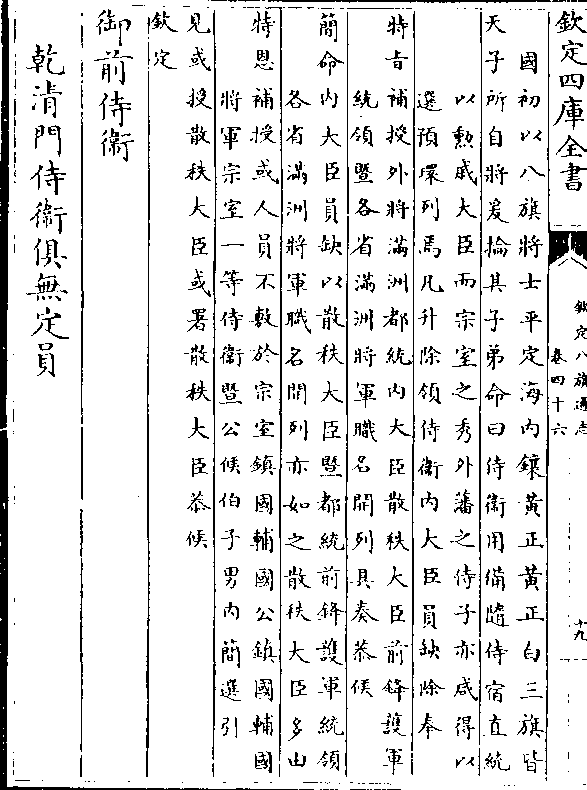 欽定四庫全書
欽定八旗通志
卷四十六
十九
國初以八旗將士平定海内鑲黄正黄正白三旗皆
天子所自將爰掄其子弟命曰侍衛用備隨侍宿直統
以勲戚大臣而宗室之秀外藩之侍子亦咸得以
選預環列焉凡升除領侍衛内大臣員缺除奉
特旨補授外將滿洲都統内大臣散秩大臣前鋒護軍
統領暨各省滿洲將軍職名開列具奏恭候
簡命内大臣員缺以散秩大臣暨都統前鋒護軍統領
各省滿洲將軍職名開列亦如之散秩大臣多由
特恩補授或人員不敷於宗室鎮國輔國公鎮國輔國
將軍宗室一等侍衛暨公候伯子男内簡選引
見或授散秩大臣或署散秩大臣恭候
欽定
御前侍衛
乾清門侍衛俱無定員